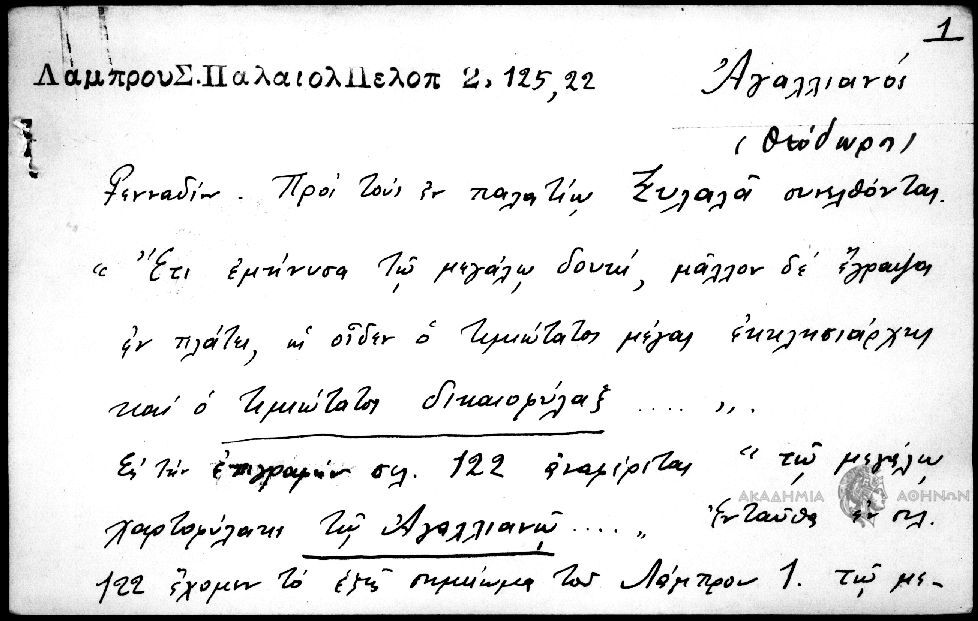 1
Λάμπρου Σ. Παλαιολ Πελοπ 2, 125,22 Ἀγαλλιανός
(Θεόδωρος)
Γενναδίου. Πρὸς τοὺς ἐν παλατίῳ Ξυλαλᾶ συνελθόντας.
"Ἔτι ἐμήνυσα τῷ μεγάλῳ δουκί, μᾶλλον δὲ ἔγραψα
ἐν πλάτει, ὡς οἶδεν ὁ τιμιώτατος μέγας ἐκκλησιάρχης
καὶ ὁ τιμιώτατος δικαιοφύλαξ .... ".
Εἰς τὴν ἐπιγραφὴν σελ. 122 ἀναφέρεται "τῷ μεγάλῳ
χαρτοφύλακι τῷ Ἀγαλλιανῷ ...." Ἐνταῦθα ἐν σελ.
122 ἔχομεν τὸ ἑξῆς σημείωμα τοῦ Λάμπρου 1. τῷ με-
ΑΚΑΔΗΜΙΑ ΑΘΗΝΩΝ